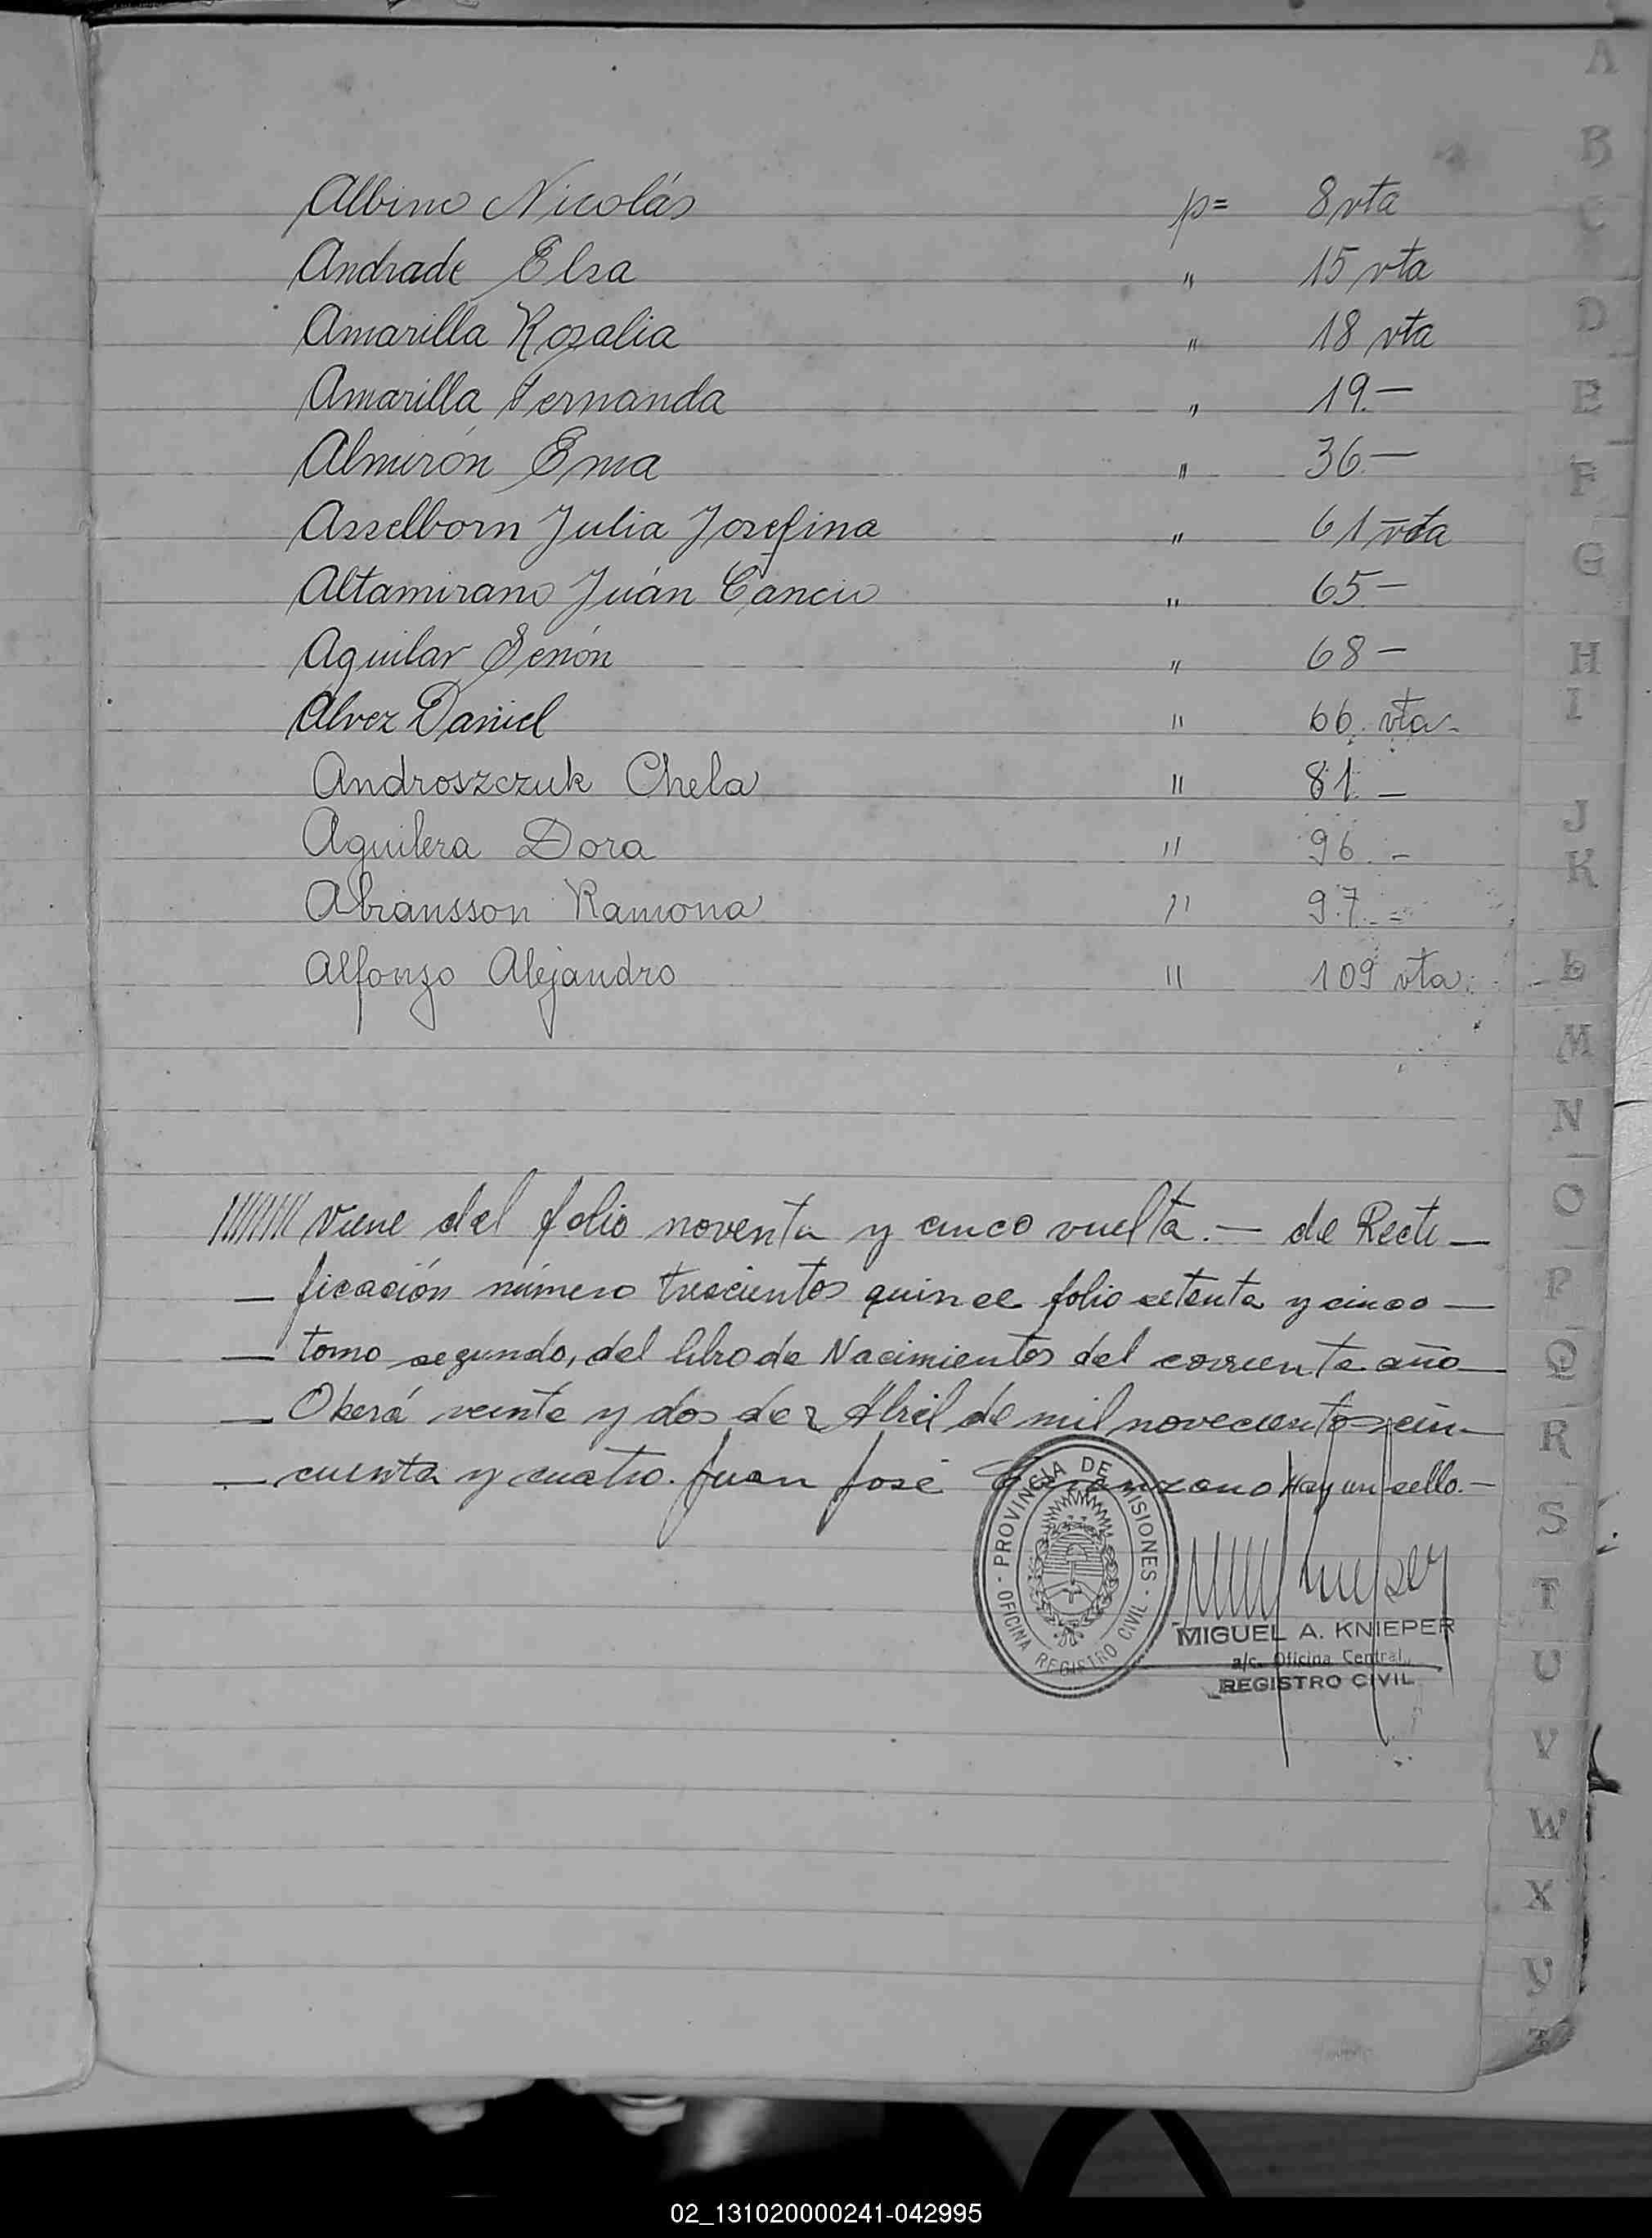 Albino Nicolás p= 8 vta
Andrade Elsa " 15 vta
Amarilla Rosalia " 18 vta
Amarilla Fernanda " 19.—
Almirón Ema " 36.—
Asselborn Julia Josefina " 61 vta
Altamirano Juán Cancio " 65.—
Aguilar Senón " 68 —
Alvez Daniel " 66. vta-
Androszczuk Chela " 81. —
Aguilera Dora " 96. -
Abransson Ramona " 97. -
Alfonzo Alejandro " 109 vta.
Viene del folio noventa y cinco vuelta. — de Recti —
— ficación número trescientos quince folio setenta y cinco —
— tomo segundo, del libro de Nacimientos del corriente año —
— Oberá veinte y dos de Abril de mil novecientos cin —
— cuenta y cuatro. Juan José Hay un sello. —
PROVINCIA DE MISIONES
OFICINA REGISTRO CIVIL
MIGUEL A. KNIEPER
a/c. Oficina Central
REGISTRO CIVIL
A
B
C
D
E
F
G
H
I
J
K
L
M
N
O
P
Q
R
S
T
U
V
W
X
Y
Z
02_131020000241-042995